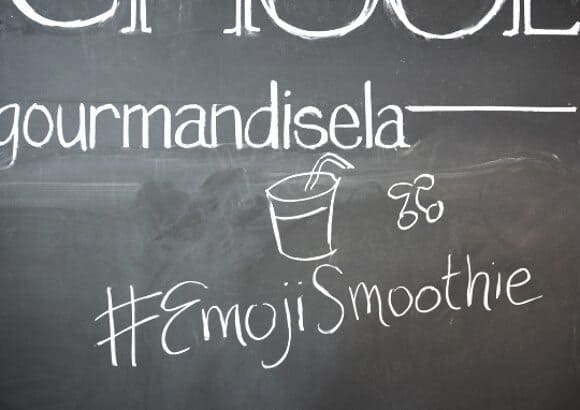 gourmandisela
#EmojiSmoothie